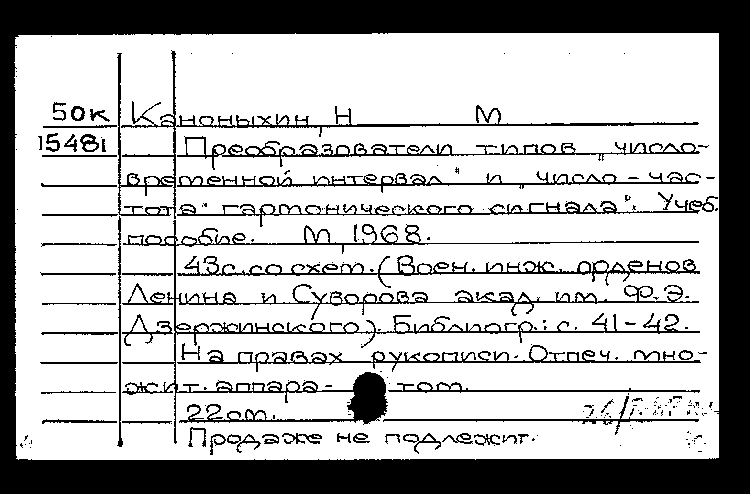 50к Каноныхин, Н М
15481 Преобразователи типов „число-
временной интервал" и „число-час-
тота" гармонического сигнала". Учеб.
пособие. М, 1968.
43с. со схем. (Воен. инж. орденов
Ленина и Суворова акад. им. Ф.Э.
Дзержинского). Библиогр.: с. 41-42.
На правах рукописи. Отпеч. мно-
жит. аппара- том.
22см.
Продаже не подлежит.